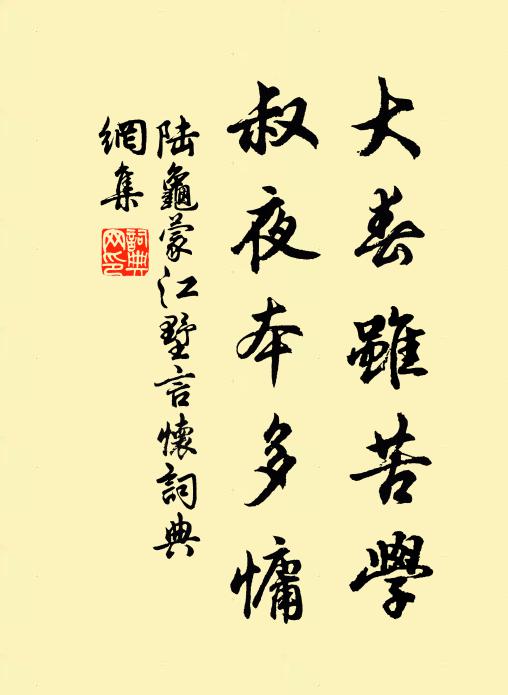 大春雖苦學
叔夜本多慵
陆龜蒙江墅言懷詞典
網集
詞典網印